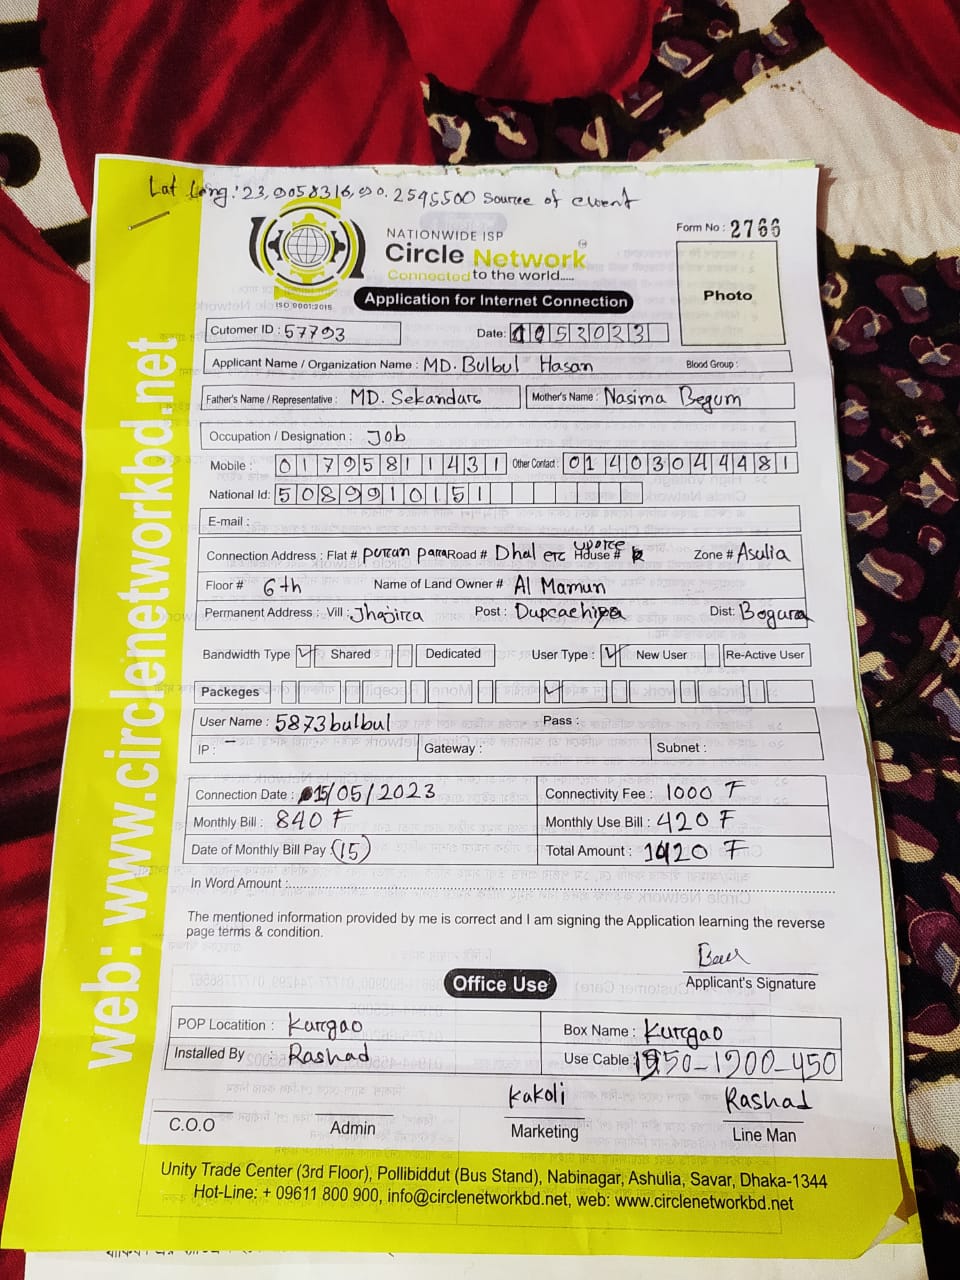 Lat Long: 23,9058316,90.2595500 Source of client
Form No : 2766
NATIONWIDE ISP
Circle Network
Connected to the world.....
ISO 9001:2015
Application for Internet Connection
Photo
Cutomer ID : 57793
Date: 1052023
Applicant Name / Organization Name : MD. Bulbul Hasan Blood Group :
Father's Name / Representative : MD. Sekandar Mother's Name : Nasima Begum
Occupation / Designation : Job
Mobile : 01795811431 Other Contact : 01403044481
National Id: 5089910151
E-mail :
Connection Address : Flat # purran para Road # Dhal House # Zone # Asulia
Floor # 6th Name of Land Owner # Al Mamun
Permanent Address : Vill : Jhajira Post : Dupcachipa Dist: Bogura
Bandwidth Type Shared Dedicated User Type : New User Re-Active User
Packeges
User Name : 5873bulbul Pass :
IP : - Gateway : Subnet :
Connection Date : 15/05/2023 Connectivity Fee : 1000 F
Monthly Bill : 840 F Monthly Use Bill : 420 F
Date of Monthly Bill Pay : (15) Total Amount : 1420 F
In Word Amount :
The mentioned information provided by me is correct and I am signing the Application learning the reverse
page terms & condition.
Applicant's Signature
Office Use
POP Locatition : Kurgao Box Name : Kurgao
Installed By Rashad Use Cable : 1950-1500-450
Kakoli Rashad
C.O.O Admin Marketing Line Man
Unity Trade Center (3rd Floor), Pollibiddut (Bus Stand), Nabinagar, Ashulia, Savar, Dhaka-1344
Hot-Line: + 09611 800 900, info@circlenetworkbd.net, web: www.circlenetworkbd.net
web: www.circlenetworkbd.net